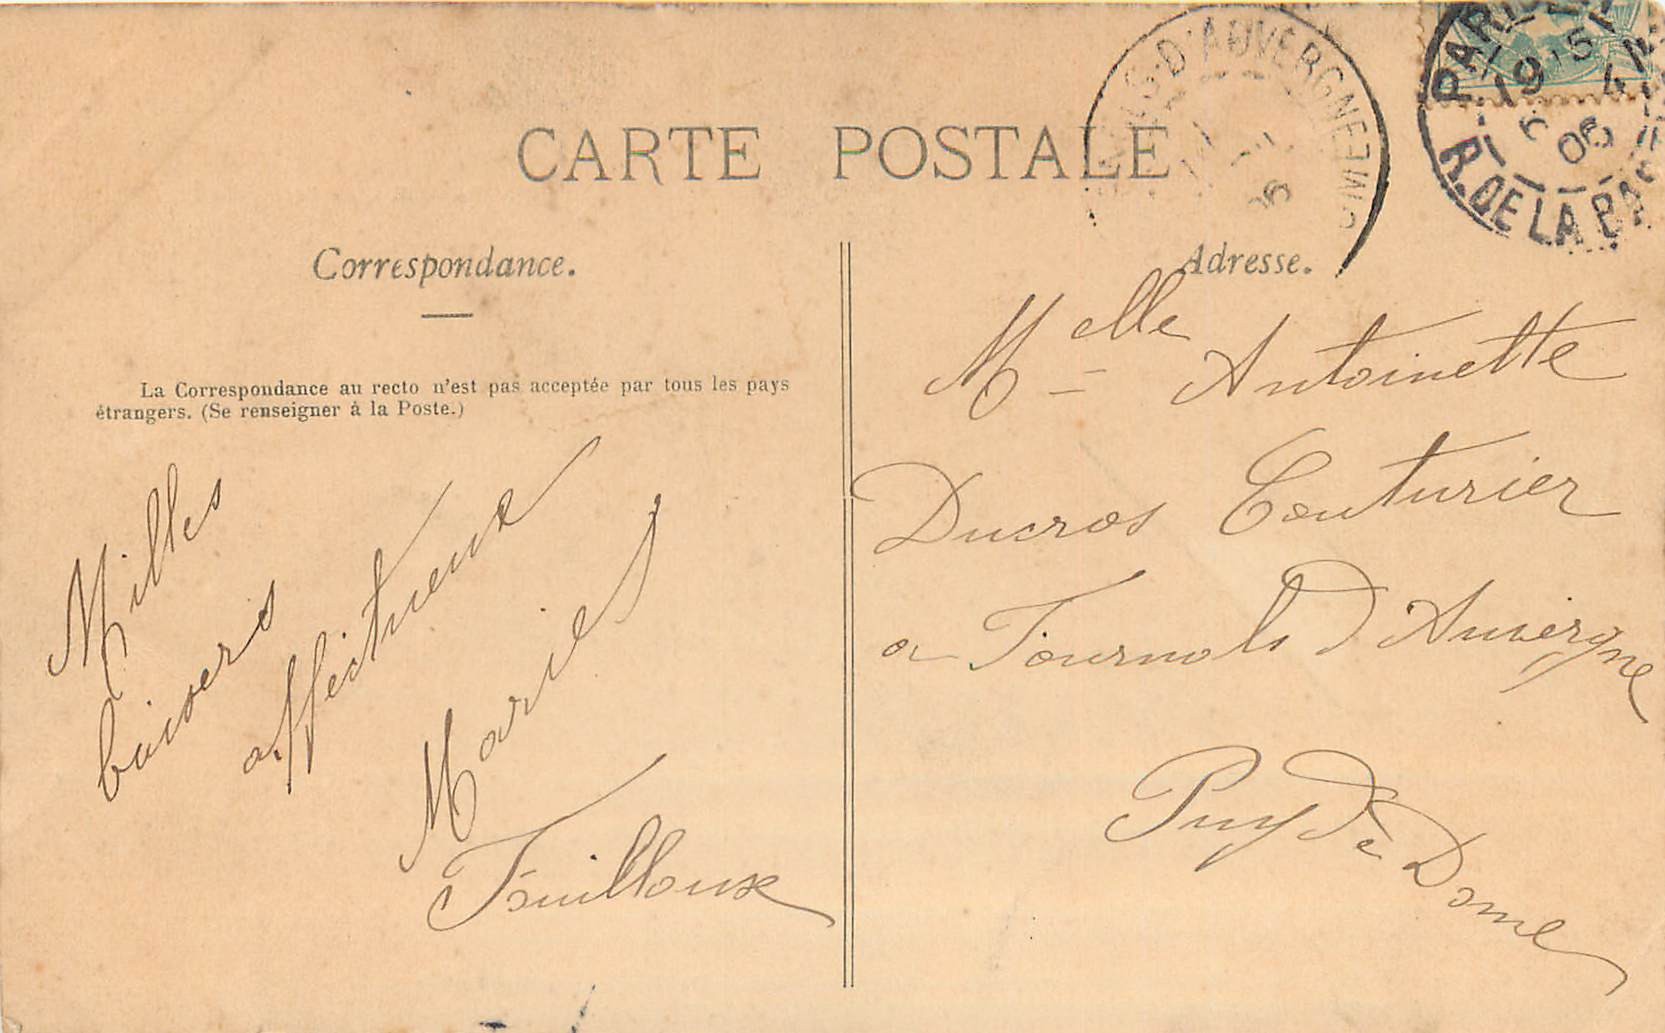 CARTE POSTALE
D'AUVERGNE
06
PARIS
19
15
4
06
R. DE LA BAS
Correspondance.
Adresse.
La Correspondance au recto n'est pas acceptée par tous les pays
étrangers. (Se renseigner à la Poste.)
Milles
baisers
affectueux
Maries
Touilloux
Melle Antoinette
Ducros Couturier
a Tournols d'Auvergne
Puy de Dome